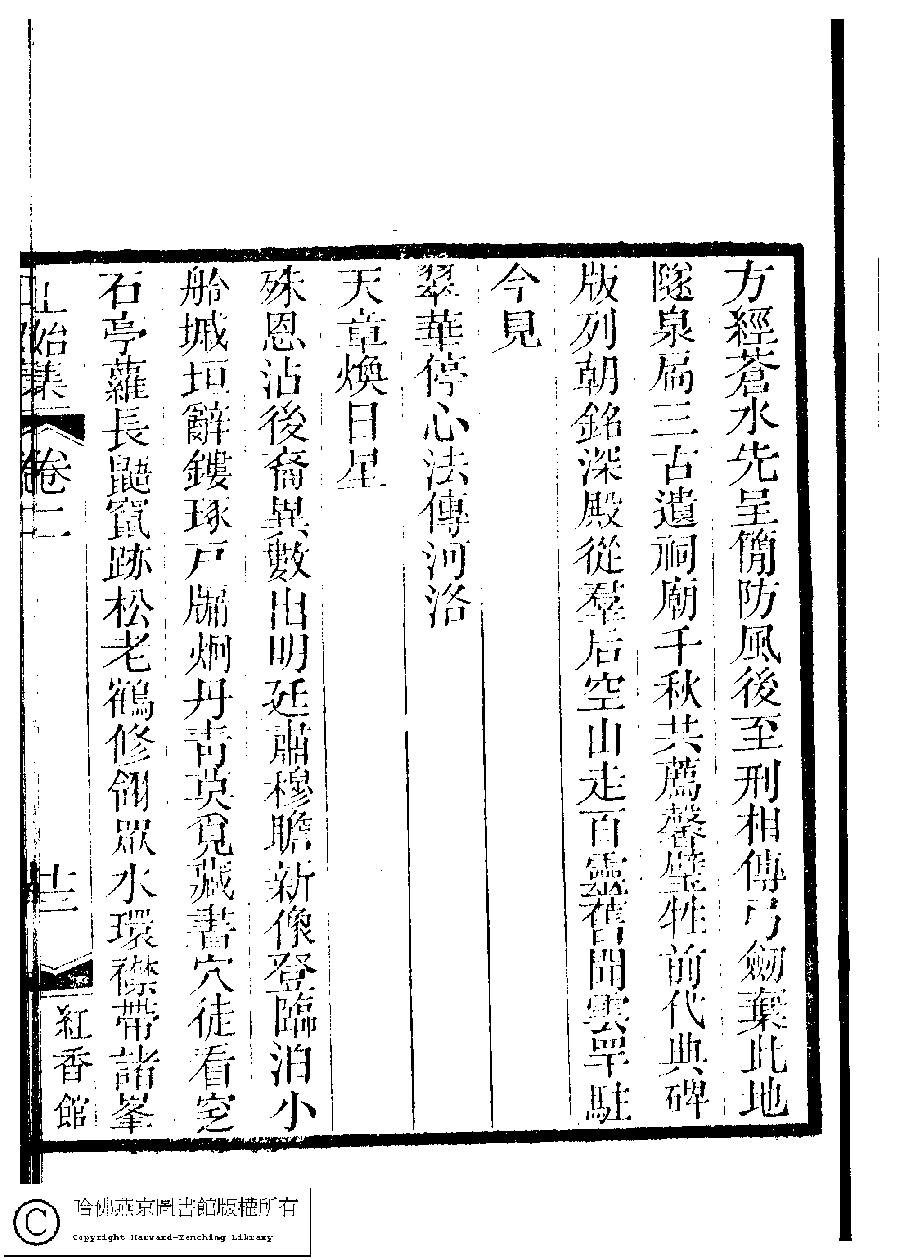 方經蒼水先呈篇防風後至刑相傳弓劒棄此地
隧泉扃三古遺祠廟千秋共薦馨璧牲前代典碑
版列朝銘深殿從羣后空山走百靈舊聞雲罕駐
今見
翠華停心法傳河洛
天章煥日星
殊恩沾後裔異數出明廷肅穆瞻新像登臨泊小
舲城垣辭鏤琢戶牖炯丹靑莫覓藏書穴徒看窆
石亭蘿長鼯竄跡松老鶴修翎眾水環襟帶諸峯
正始集
卷二
十二
紅香館
哈佛燕京圖書館版權所有
Copyright Harvard-Yenching Library